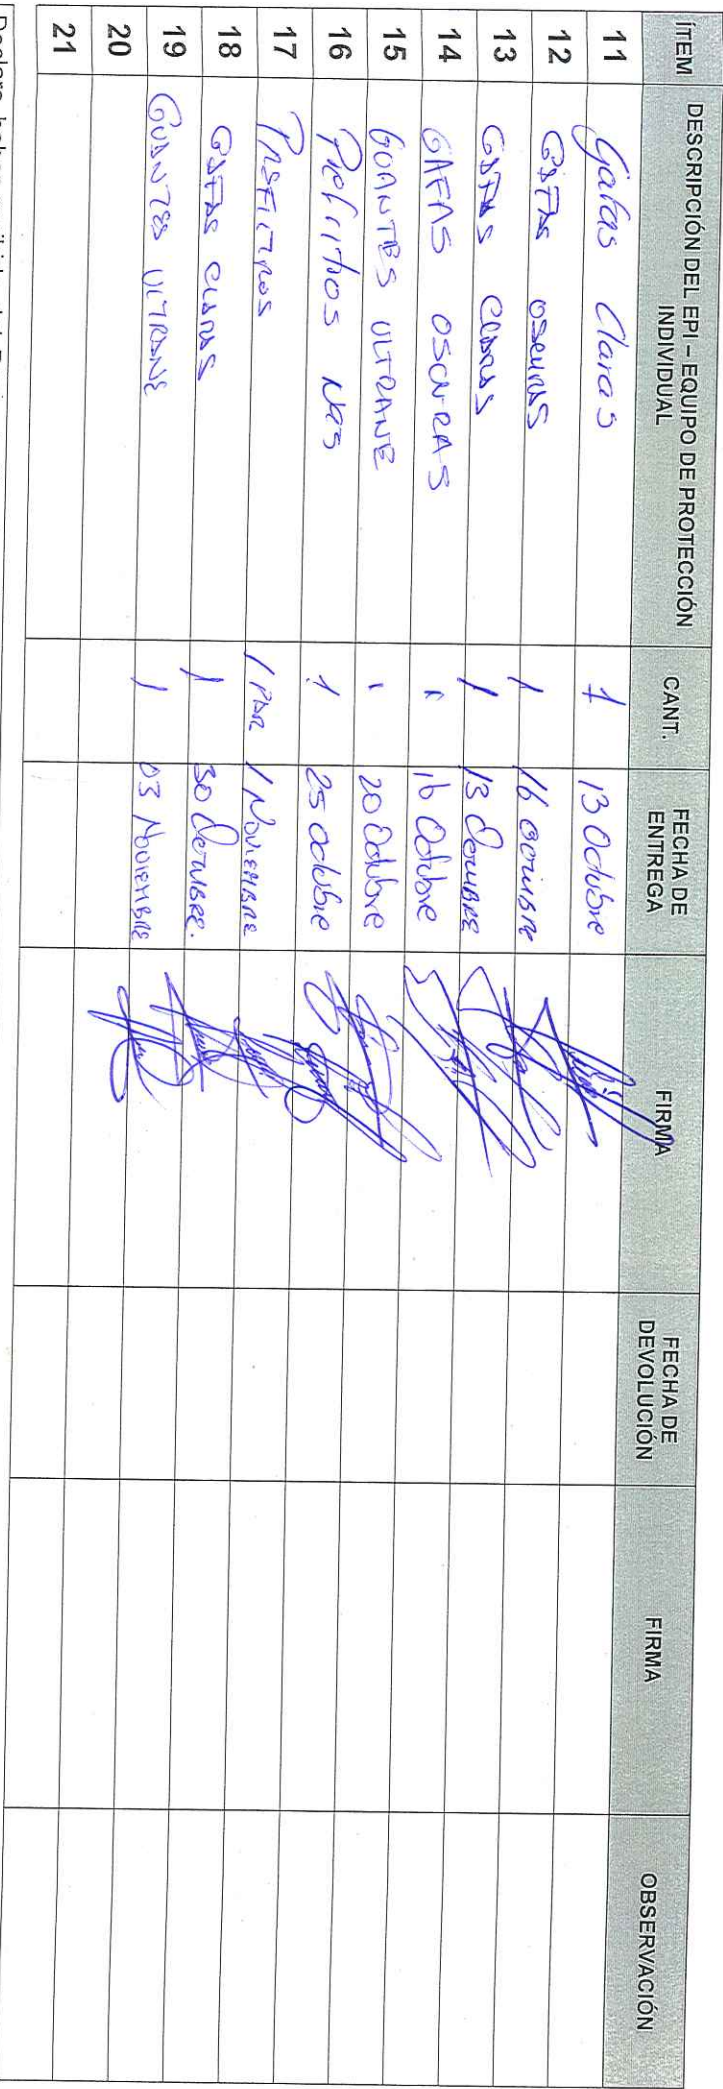 ÍTEM DESCRIPCIÓN DEL EPI – EQUIPO DE PROTECCIÓN INDIVIDUAL CANT. FECHA DE ENTREGA FIRMA FECHA DE DEVOLUCIÓN FIRMA OBSERVACIÓN
11 Gafas Claras 1 13 Octubre
12 GAFAS OSCURAS 1 16 OCTUBRE
13 GAFAS CLARAS 1 13 OCTUBRE
14 GAFAS OSCURAS 1 16 Octubre
15 GUANTES ULTRANE 1 20 Octubre
16 Prefiltros 1 25 octubre
17 PREFILTROS 1 PAR 1 NOVIEMBRE
18 GAFAS CLARAS 1 30 OCTUBRE.
19 GUANTES ULTRANE 1 03 NOVIEMBRE
20
21